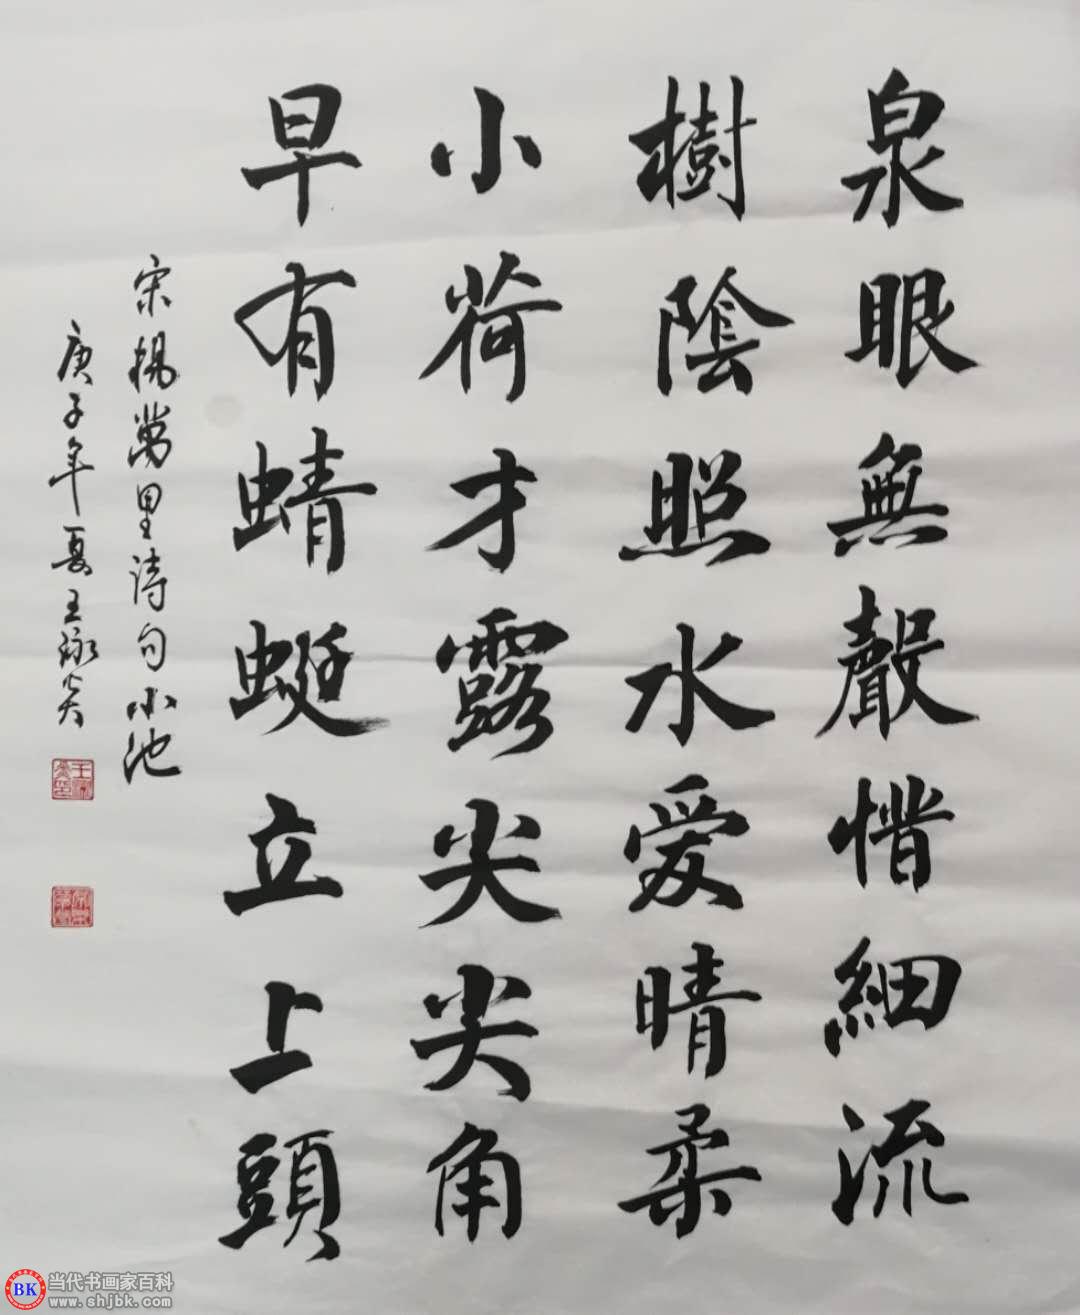 泉眼無聲惜細流
樹陰照水愛晴柔
小荷才露尖尖角
早有蜻蜓立上頭
宋楊萬里诗句小池
庚子年夏王
当代书画家百科
www.shjbk.com
BK